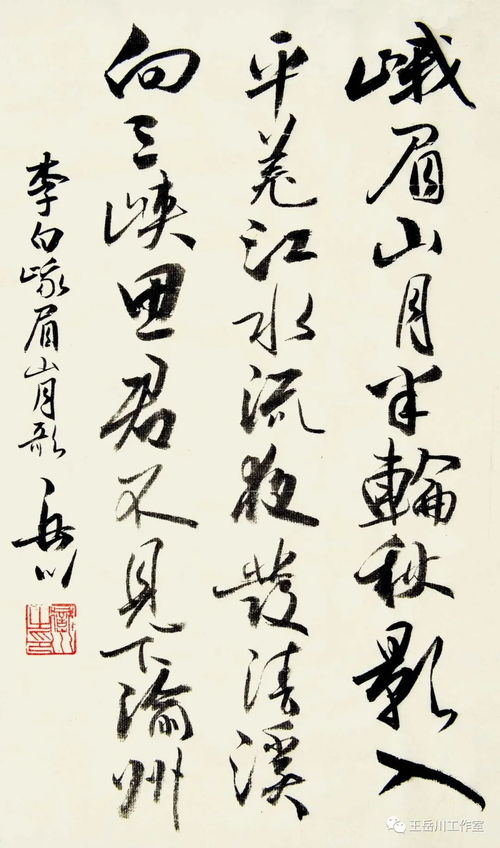 峨眉山月半輪秋影入
平羌江水流夜發清溪
向三峽思君不見下渝州
李白峨眉山月歌 岳川
王岳川工作室